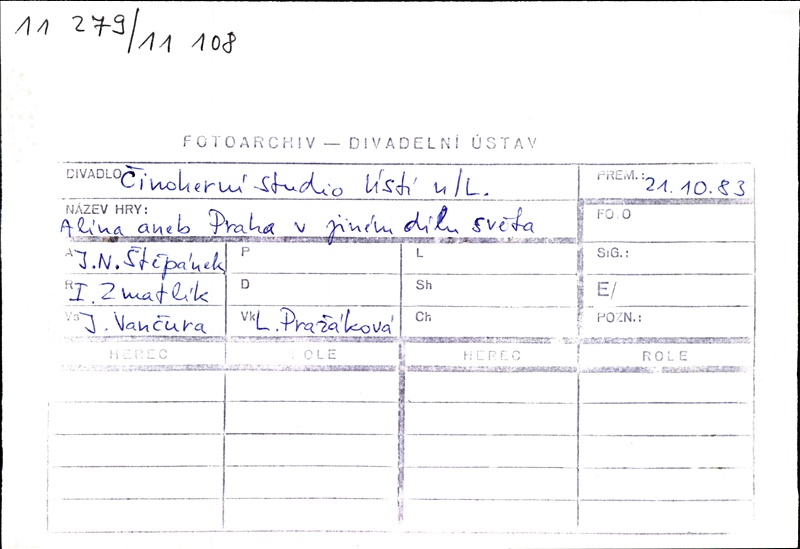 11 279/11 108
FOTOARCHIV — DIVADELNÍ ÚSTAV
DIVADLO Činoherní studio Ústí n/L. PREM.: 21.10.83
NÁZEV HRY: FOTO
Alina aneb Praha v jiném dílu světa
A J.N. Štěpánek P L SIG.:
R I. Zmatlík D Sh E/
Vs J. Vančura Vk L. Pražáková Ch POZN.:
HEREC ROLE HEREC ROLE